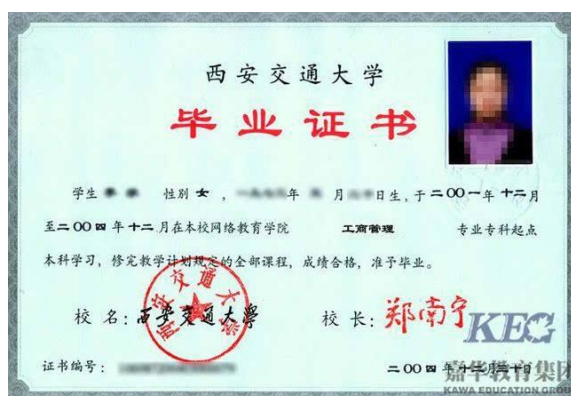 西安交通大学
毕业证书
学生 性别 女 ， 年 月 日生，于二〇〇一年 十二月
至二〇〇四年十二月在本校网络教育学院 工商管理 专业专科起点
本科学习，修完教学计划规定的全部课程，成绩合格，准予毕业。
校 名：西安交通大學 校 长：郑南宁
西安交通大学
KEG
证书编号： 二〇〇四年十二月三十日
嘉华教育集团
KAWA EDUCATION GROUP